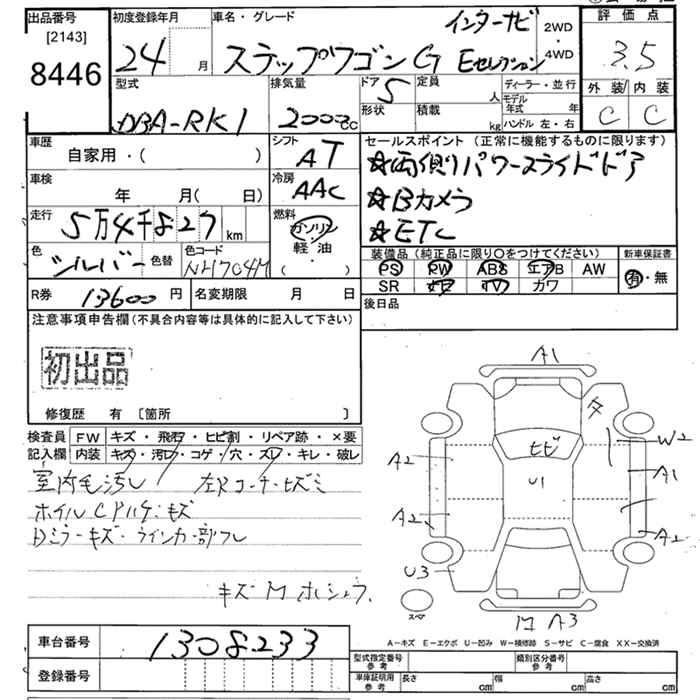 出品番号
[2143]
8446
初度登録年月
24 月
車名・グレード
インターナビ
ステップワゴン G Eセレクション
2WD
・
4WD
評価点
3.5
外装 内装
C C
型式
DBA-RK1
排気量
2000cc
ドア 5
形状
定員 人
積載 kg
ディーラー・並行
モデル年式 年
ハンドル 左・右
車歴
自家用・( )
シフト
AT
セールスポイント(正常に機能するものに限ります)
☆両側パワースライドドア
☆Bカメラ
☆ETC
車検
年 月( 日)
冷房
AAC
走行
5万4千827km
燃料
ガソリン
軽・油
( )
色
シルバー
色替
色コード
NH704M
装備品(純正品に限り○をつけてください)
PS PW ABS エアB AW
SR ナビ TV カワ
新車保証書
有・無
R券
13600円
名変期限 月 日
後日品
注意事項申告欄(不具合内容等は具体的に記入して下さい)
初出品
修復歴 有 〔箇所 〕
検査員
記入欄
FW キズ・飛石・ヒビ割・リペア跡・×要
内装 キズ・汚れ・コゲ・穴・ズレ・キレ・破レ
室内毛汚レ 左Rコーナーヒズミ
ホイルCアリ・キズ
Dミラーキズ・ウインカー部ワレ
キズM ホシュウ
A1
タ
W2
ヒビ
A2
U1
A1
A2
A2
U3
スペア
M A3
A-キズ E-エクボ U-凹み W-補修跡 S-サビ C-腐食 XX-交換済
車台番号
1308233
登録番号
型式指定番号
参考
類別区分番号
参考
車庫証明用
参考
長さ cm
幅 cm
高さ cm